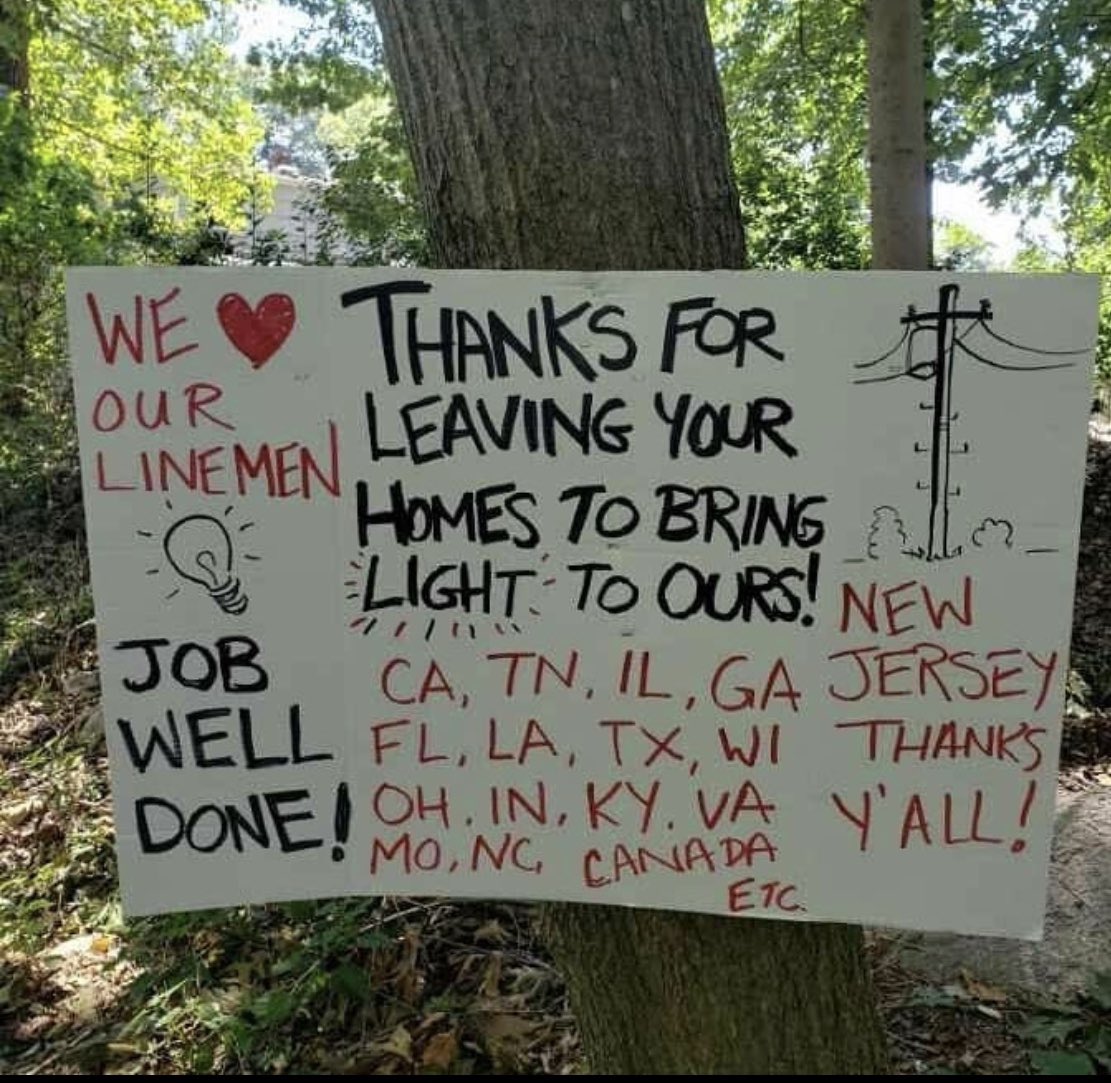 WE ♥
OUR
LINEMEN
JOB
WELL
DONE!
THANKS FOR
LEAVING YOUR
HOMES TO BRING
LIGHT TO OURS!
CA, TN, IL, GA
FL, LA, TX, WI
OH, IN, KY. VA
MO, NC, CANADA
ETC.
NEW
JERSEY
THANKS
Y'ALL!